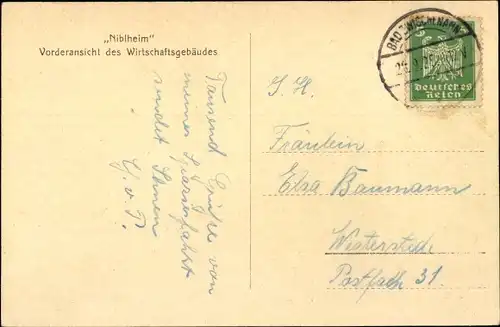 „Niblheim"
Vorderansicht des Wirtschaftsgebäudes
BAD ZWISCHENAHN
Deutsches
Reich
Tausend Grüße von
meiner Spazierfahrt
sendet Ihnen
I. H.
Fräulein
Elsa Baumann
Westerstede
Postfach 31.